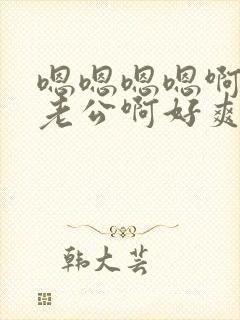 嗯嗯嗯嗯啊
老公啊好爽
韩大芸